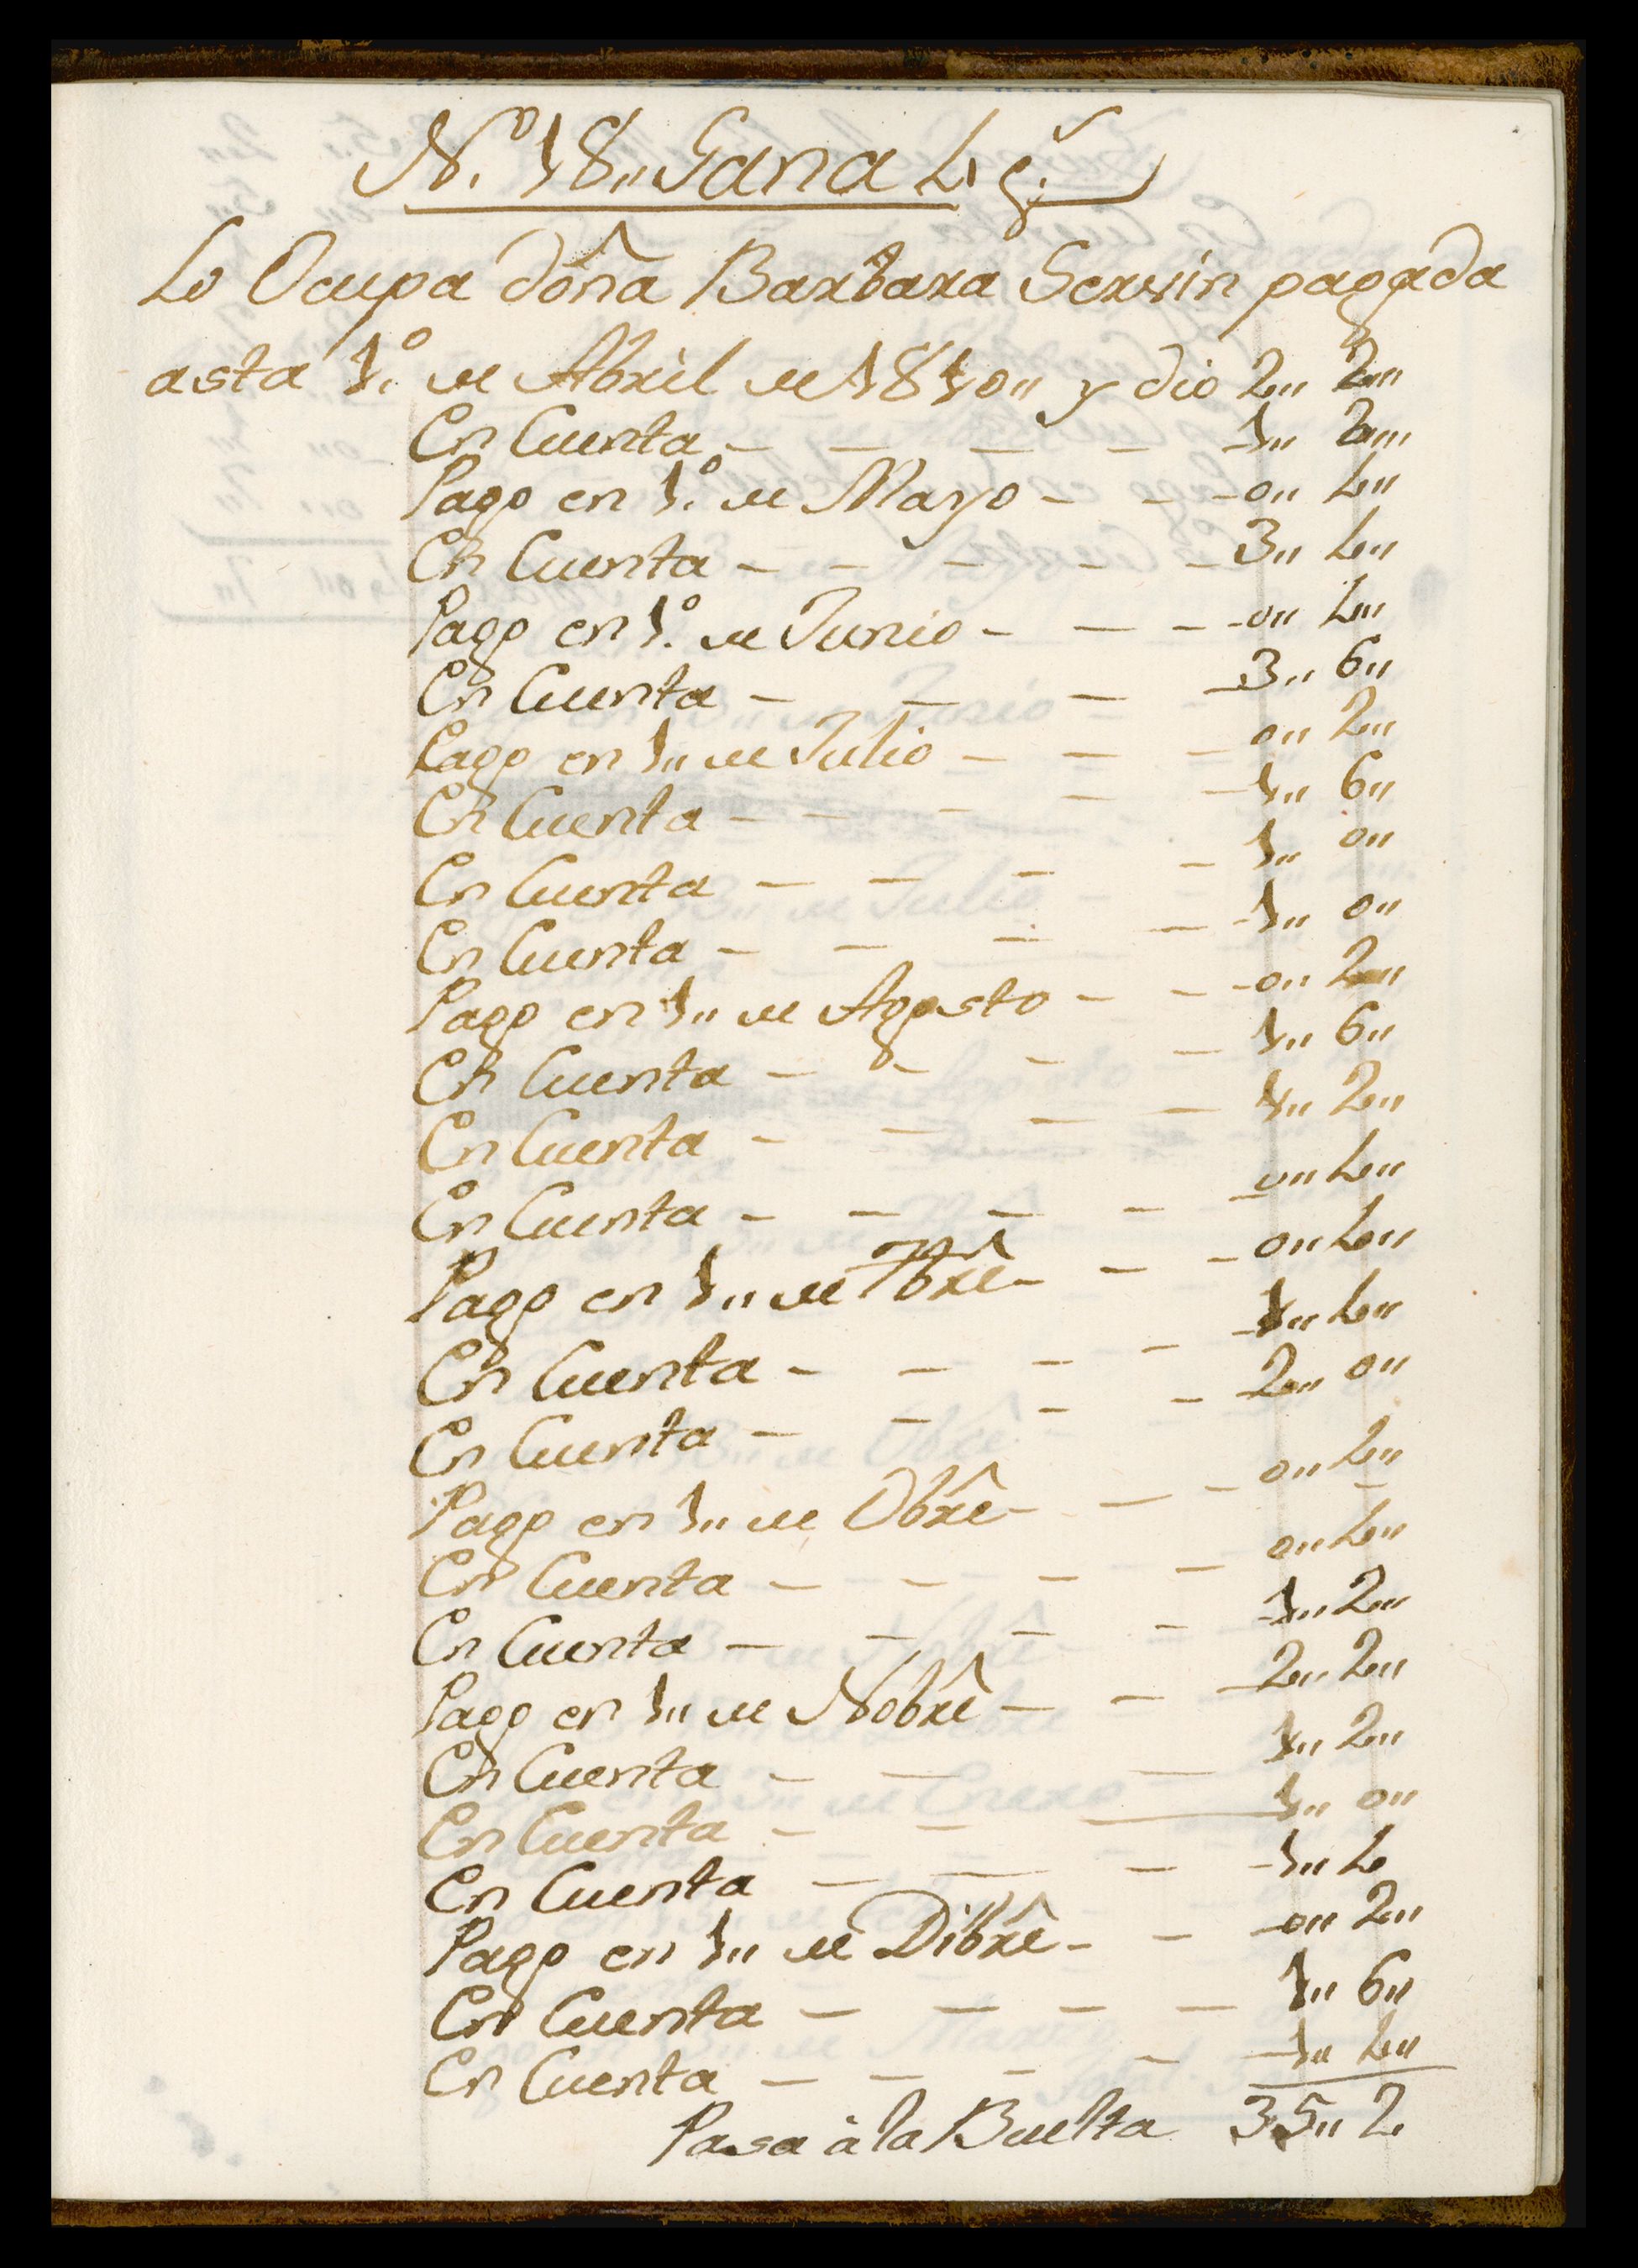 N.º 18,, Gana 4 p.s
Lo Ocupa doña Barbara Servin pagada
asta 1.º de Abril de 1810,, y dio 2,, 2,,
En Cuenta - - - - 1,, 2,,
Pago en 1.º de Mayo - - - 0,, 4,,
En Cuenta - - - - - 3,, 4,,
Pago en 1.º de Junio - - - 0,, 4,,
En Cuenta - - - - 3,, 6,,
Pago en 1,, de Julio - - - 0,, 2,,
En Cuenta - - - - - 1,, 6,,
En Cuenta - - - - 1,, 0,,
En Cuenta - - - - 1,, 0,,
Pago en 1,, de Agosto - - - 0,, 2,,
En Cuenta - - - - 1,, 6,,
En Cuenta - - - - 1,, 2,,
En Cuenta - - - - - 0,, 4,,
Pago en 1,, de 7brê - - - 0,, 4,,
En Cuenta - - - - 1,, 4,,
En Cuenta - - - - 2,, 0,,
Pago en 1,, de Obrê - - - 0,, 4,,
En Cuenta - - - - 0,, 4,,
En Cuenta - - - - 1,, 2,,
Pago en 1,, de Nobrê - - - 2,, 2,,
En Cuenta - - - 1,, 2,,
En Cuenta - - - 1,, 0,,
En Cuenta - - - - 1,, 4
Pago en 1,, de Dibrê - - - 0,, 2,,
En Cuenta - - - - 1,, 6,,
En Cuenta - - - - - 1,, 4,,
Pasa à la Buelta 35,, 2